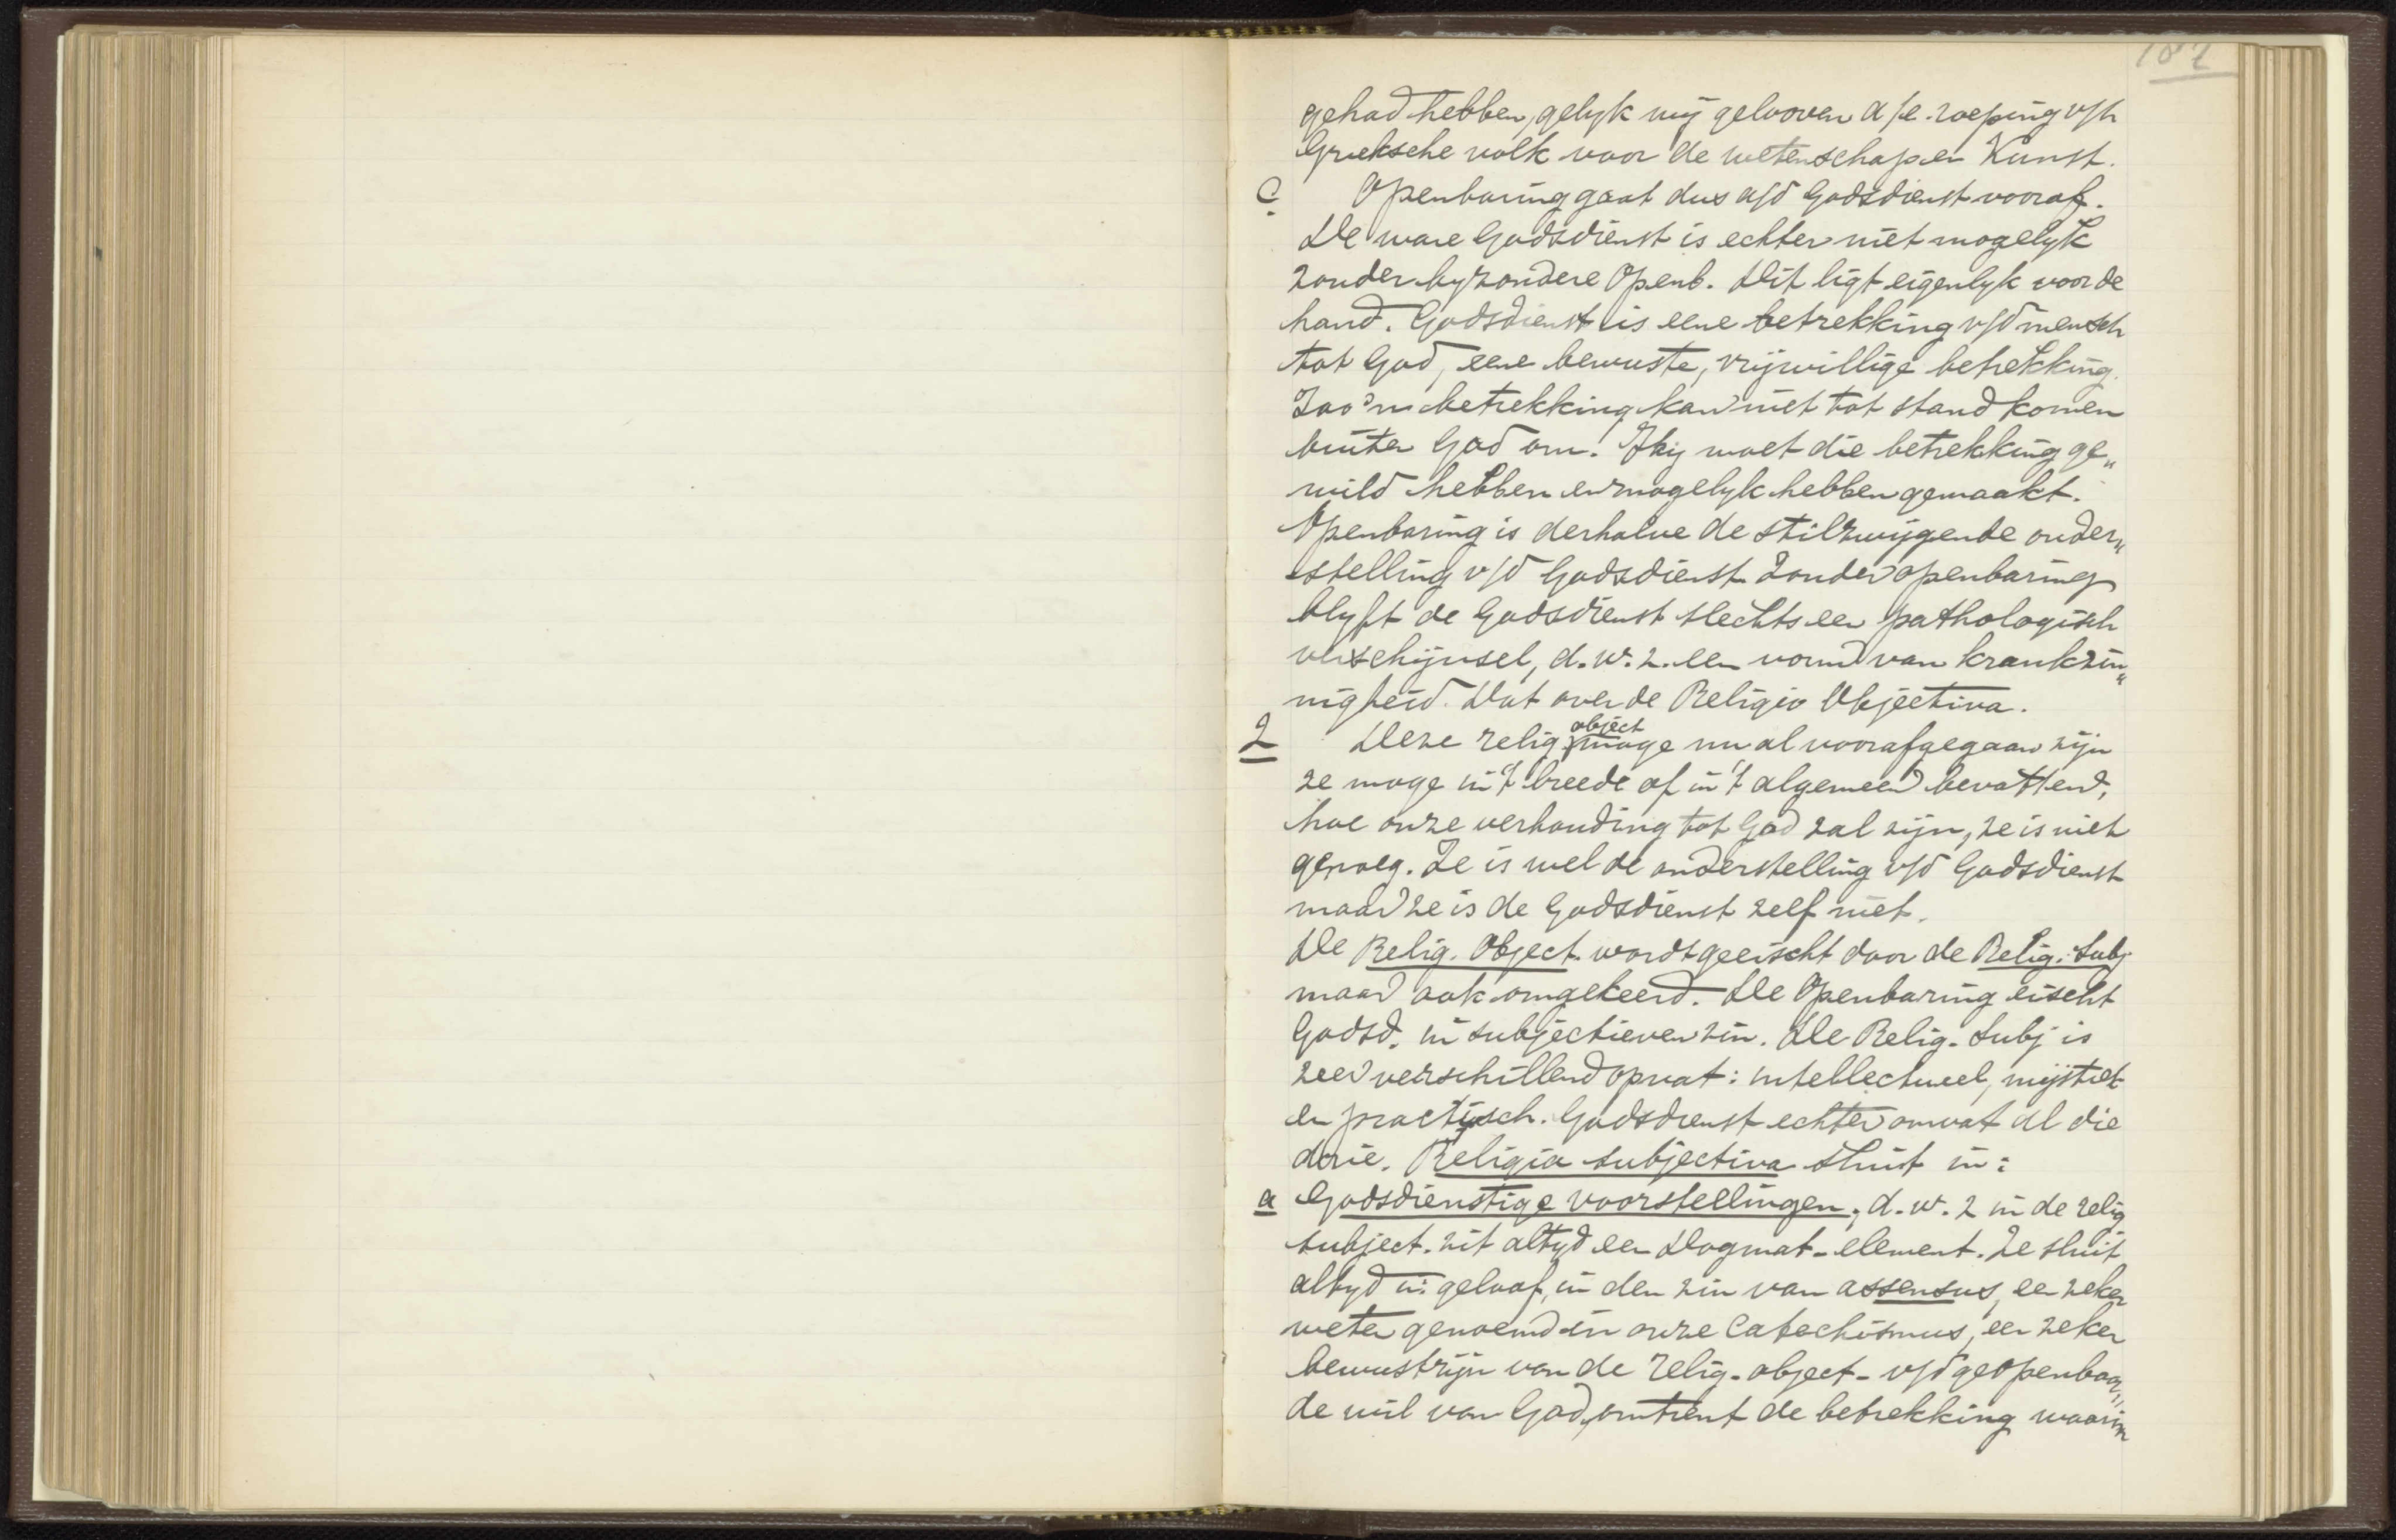 187
gehad hebben, gelyk wij gelooven a/e roeping v/h
Grieksche volk voor de wetenschap en Kunst.
C Openbaring gaat dus a/d Godsdienst vooraf.
De ware Godsdienst is echter niet mogelyk
zonder byzondere Openb. Dit ligt eigenlyk voor de
hand. Godsdienst is eene betrekking v/d mensch
tot God, eene bewuste, vrijwillige betrekking.
Zoo'n betrekking kan niet tot stand komen
buiten God om. Hij moet die betrekking ge„
wild hebben en mogelyk hebben gemaakt.
Openbaring is derhalve de stilzwijgende onder„
stelling v/d Godsdienst. Zonder openbaring
blyft de Godsdienst slechts een pathologisch
verschijnsel, d.w.z. een vorm van krankzin„
nigheid. Dat over de Religio Objectiva.
2 Deze relig. object moge nu al voorafgegaan zijn
ze moge in 't breede of in 't algemeen bevatten,
hoe onze verhouding tot God zal zijn, ze is niet
genoeg. Ze is wel de onderstelling v/d Godsdienst
maar ze is de Godsdienst zelf niet.
De Relig. Object. wordt geeischt door de Relig. Subj
maar ook omgekeerd. De Openbaring eischt
Godsd. in subjectieven zin. De Relig. Subj is
zeer verschillend opvat: intellectueel, mijstiek
en practisch. Godsdienst echter omvat al die
drie. Religio subjectiva sluit in:
a Godsdienstige voorstellingen, d.w.z in de relig
subject. zit altyd een Dogmat-element. Ze sluit
altyd in: geloof, in den zin van assensus, een zeker
weten genoemd in onze Catechismus, een zeker
bewustzijn van de relig-object- v/d geopenbaar„
de wil van God, omtrent de betrekking waarin